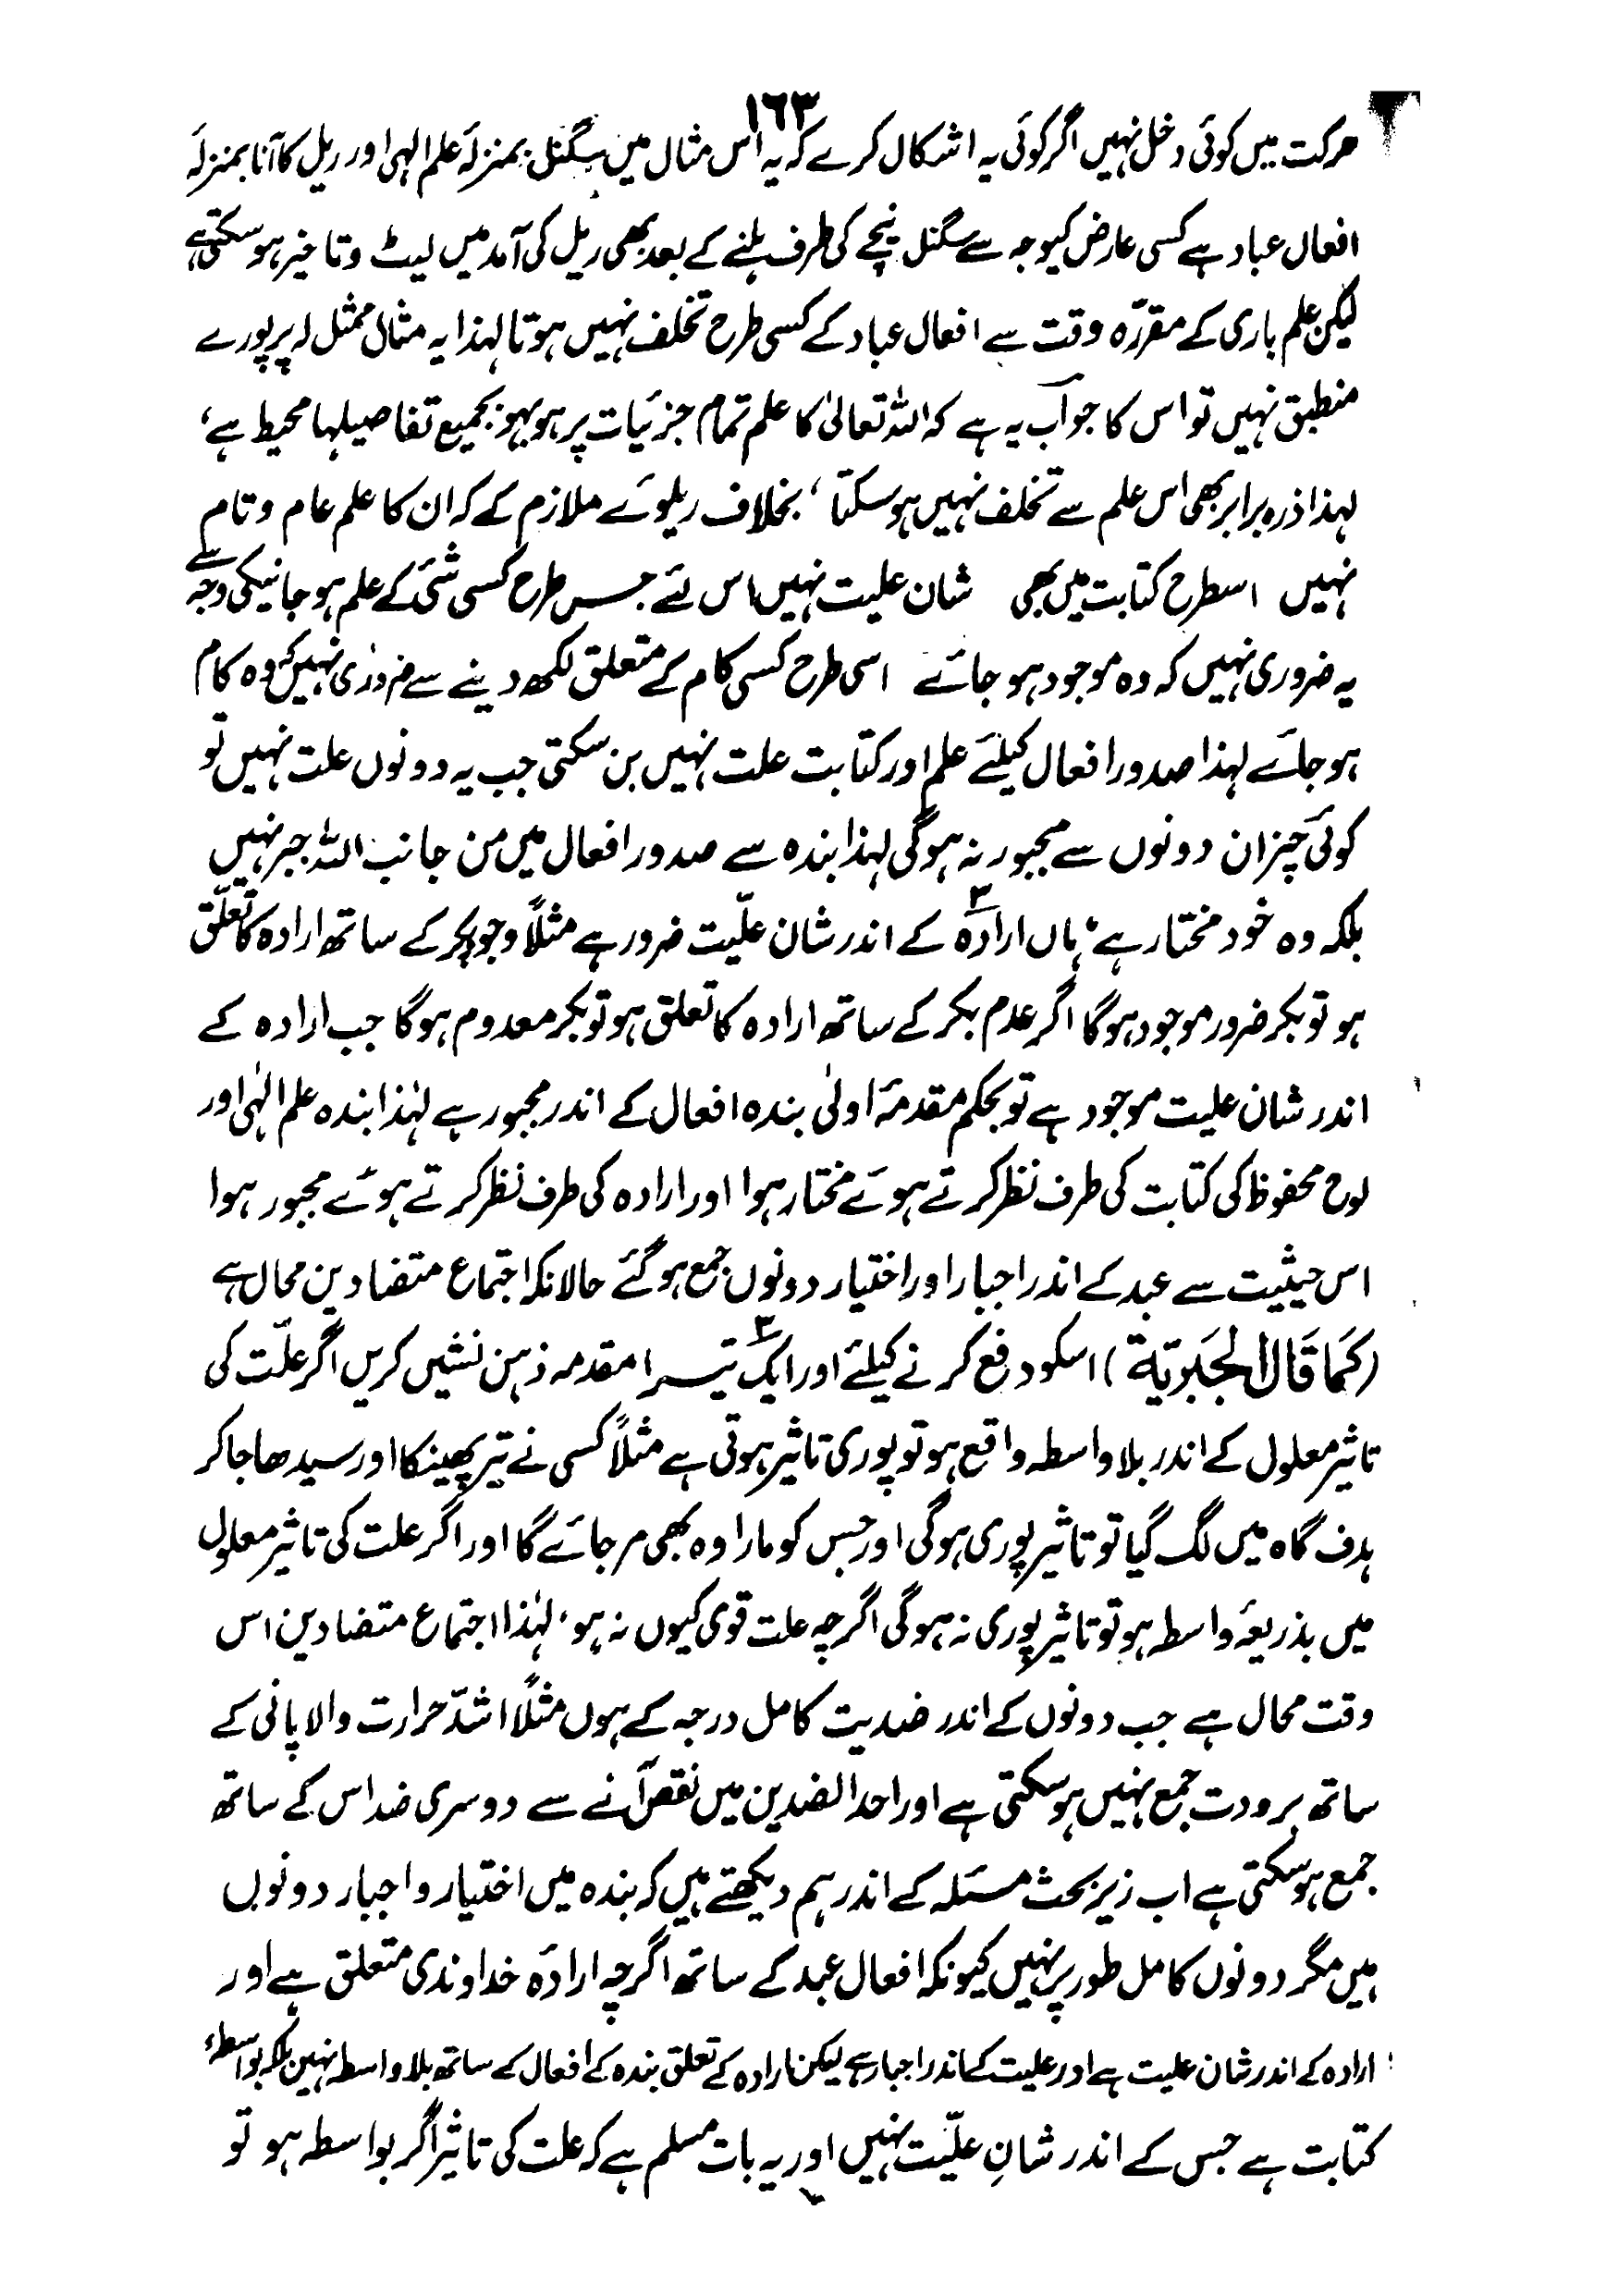 ۱۶۳
حرکت میں کوئی دخل نہیں اگر کوئی یہ اشکال کرے کہ یہ اس مثال میں سگنل بمنزلہٗ علم الہی اور ریل کا آنا بمنزلہٗ
افعال عباد ہے کسی عارض کیوجہ سے سگنل نیچے کی طرف ہلنے کے بعد بھی ریل کی آمد میں لیٹ وتاخیر ہو سکتی ہے
لیکن علم باری کے مقررّہ وقت سے افعال عباد کے کسی طرح تخلف نہیں ہوتا لہذا یہ مثال ممثل لہ پر پورے
منطبق نہیں تو اس کا جواب یہ ہے کہ اللہ تعالیٰ کا علم تمام جزئیات پر ہو بہو بجمیع تفاصیلہا محیط ہے،
لہذا ذرہ برابر بھی اس علم سے تخلف نہیں ہو سکتا، بخلاف ریلوے ملازم کے کہ ان کا علم عام وتام
نہیں اسطرح کتابت میں بھی شان علیت نہیں اس لئے جس طرح کسی شئی کے علم ہو جانیکی وجہ سے
یہ ضروری نہیں کہ وہ موجود ہو جائے اسی طرح کسی کام کے متعلق لکھ دینے سے ضروری نہیں کہ وہ کام
ہو جائے لہذا صدور افعال کیلئے علم اور کتابت علت نہیں بن سکتی جب یہ دونوں علت نہیں تو
کوئی چیز ان دونوں سے مجبور نہ ہوگی لہذا بندہ سے صدور افعال میں من جانب اللہ جبر نہیں
بلکہ وہ خود مختار ہے، ہاں ارادہ۳ کے اندر شان علّیت ضرور ہے مثلاً وجود بکر کے ساتھ ارادہ کا تعلّق
ہو تو بکر ضرور موجود ہوگا اگر عدم بکر کے ساتھ ارادہ کا تعلق ہو تو بکر معدوم ہوگا جب ارادہ کے
اندر شان علیت موجود ہے تو بحکم مقدمہٗ اولیٰ بندہ افعال کے اندر مجبور ہے لہٰذا بندہ علم الٰہی اور
لوح محفوظ کی کتابت کی طرف نظر کرتے ہوئے مختار ہوا اور ارادہ کی طرف نظر کرتے ہوئے مجبور ہوا
اس حیثیت سے عبد کے اندر اجبار اور اختیار دونوں جمع ہو گئے حالانکہ اجتماع متضادین محال ہے
(کَمَا قَالَ الجَبَرِیّة) اسکو دفع کرنے کیلئے اور ایک۳ تیسرا مقدمہ ذہن نشیں کریں اگر علّت کی
تاثیر معلول کے اندر بلا واسطہ واقع ہو تو پوری تاثیر ہوتی ہے مثلاً کسی نے تیر پھینکا اور سیدھا جا کر
ہدف گاہ میں لگ گیا تو تاثیر پوری ہوگی اور جس کو مارا وہ بھی مر جائے گا اور اگر علت کی تاثیر معلول
میں بذریعہٗ واسطہ ہو تو تاثیر پوری نہ ہوگی اگرچہ علت قوی کیوں نہ ہو، لہٰذا اجتماع متضادین اس
وقت محال ہے جب دونوں کے اندر ضدیت کامل درجہ کے ہوں مثلاً اشدّ حرارت والا پانی کے
ساتھ برودت جمع نہیں ہو سکتی ہے اور احد الضدین میں نقص آنے سے دوسری ضد اس کے ساتھ
جمع ہو سکتی ہے اب زیر بحث مسئلہ کے اندر ہم دیکھتے ہیں کہ بندہ میں اختیار واجبار دونوں
ہیں مگر دونوں کامل طور پر نہیں کیونکہ افعال عبد کے ساتھ اگرچہ ارادہٗ خداوندی متعلق ہے اور
ارادہ کے اندر شان علیت ہے اور علیت کے اندر اجبار ہے لیکن ارادہ کے تعلق بندہ کے افعال کے ساتھ بلا واسطہ نہیں بلکہ بواسطہٗ
کتابت ہے جس کے اندر شانِ علّیت نہیں اور یہ بات مسلم ہے کہ علت کی تاثیر اگر بواسطہ ہو تو